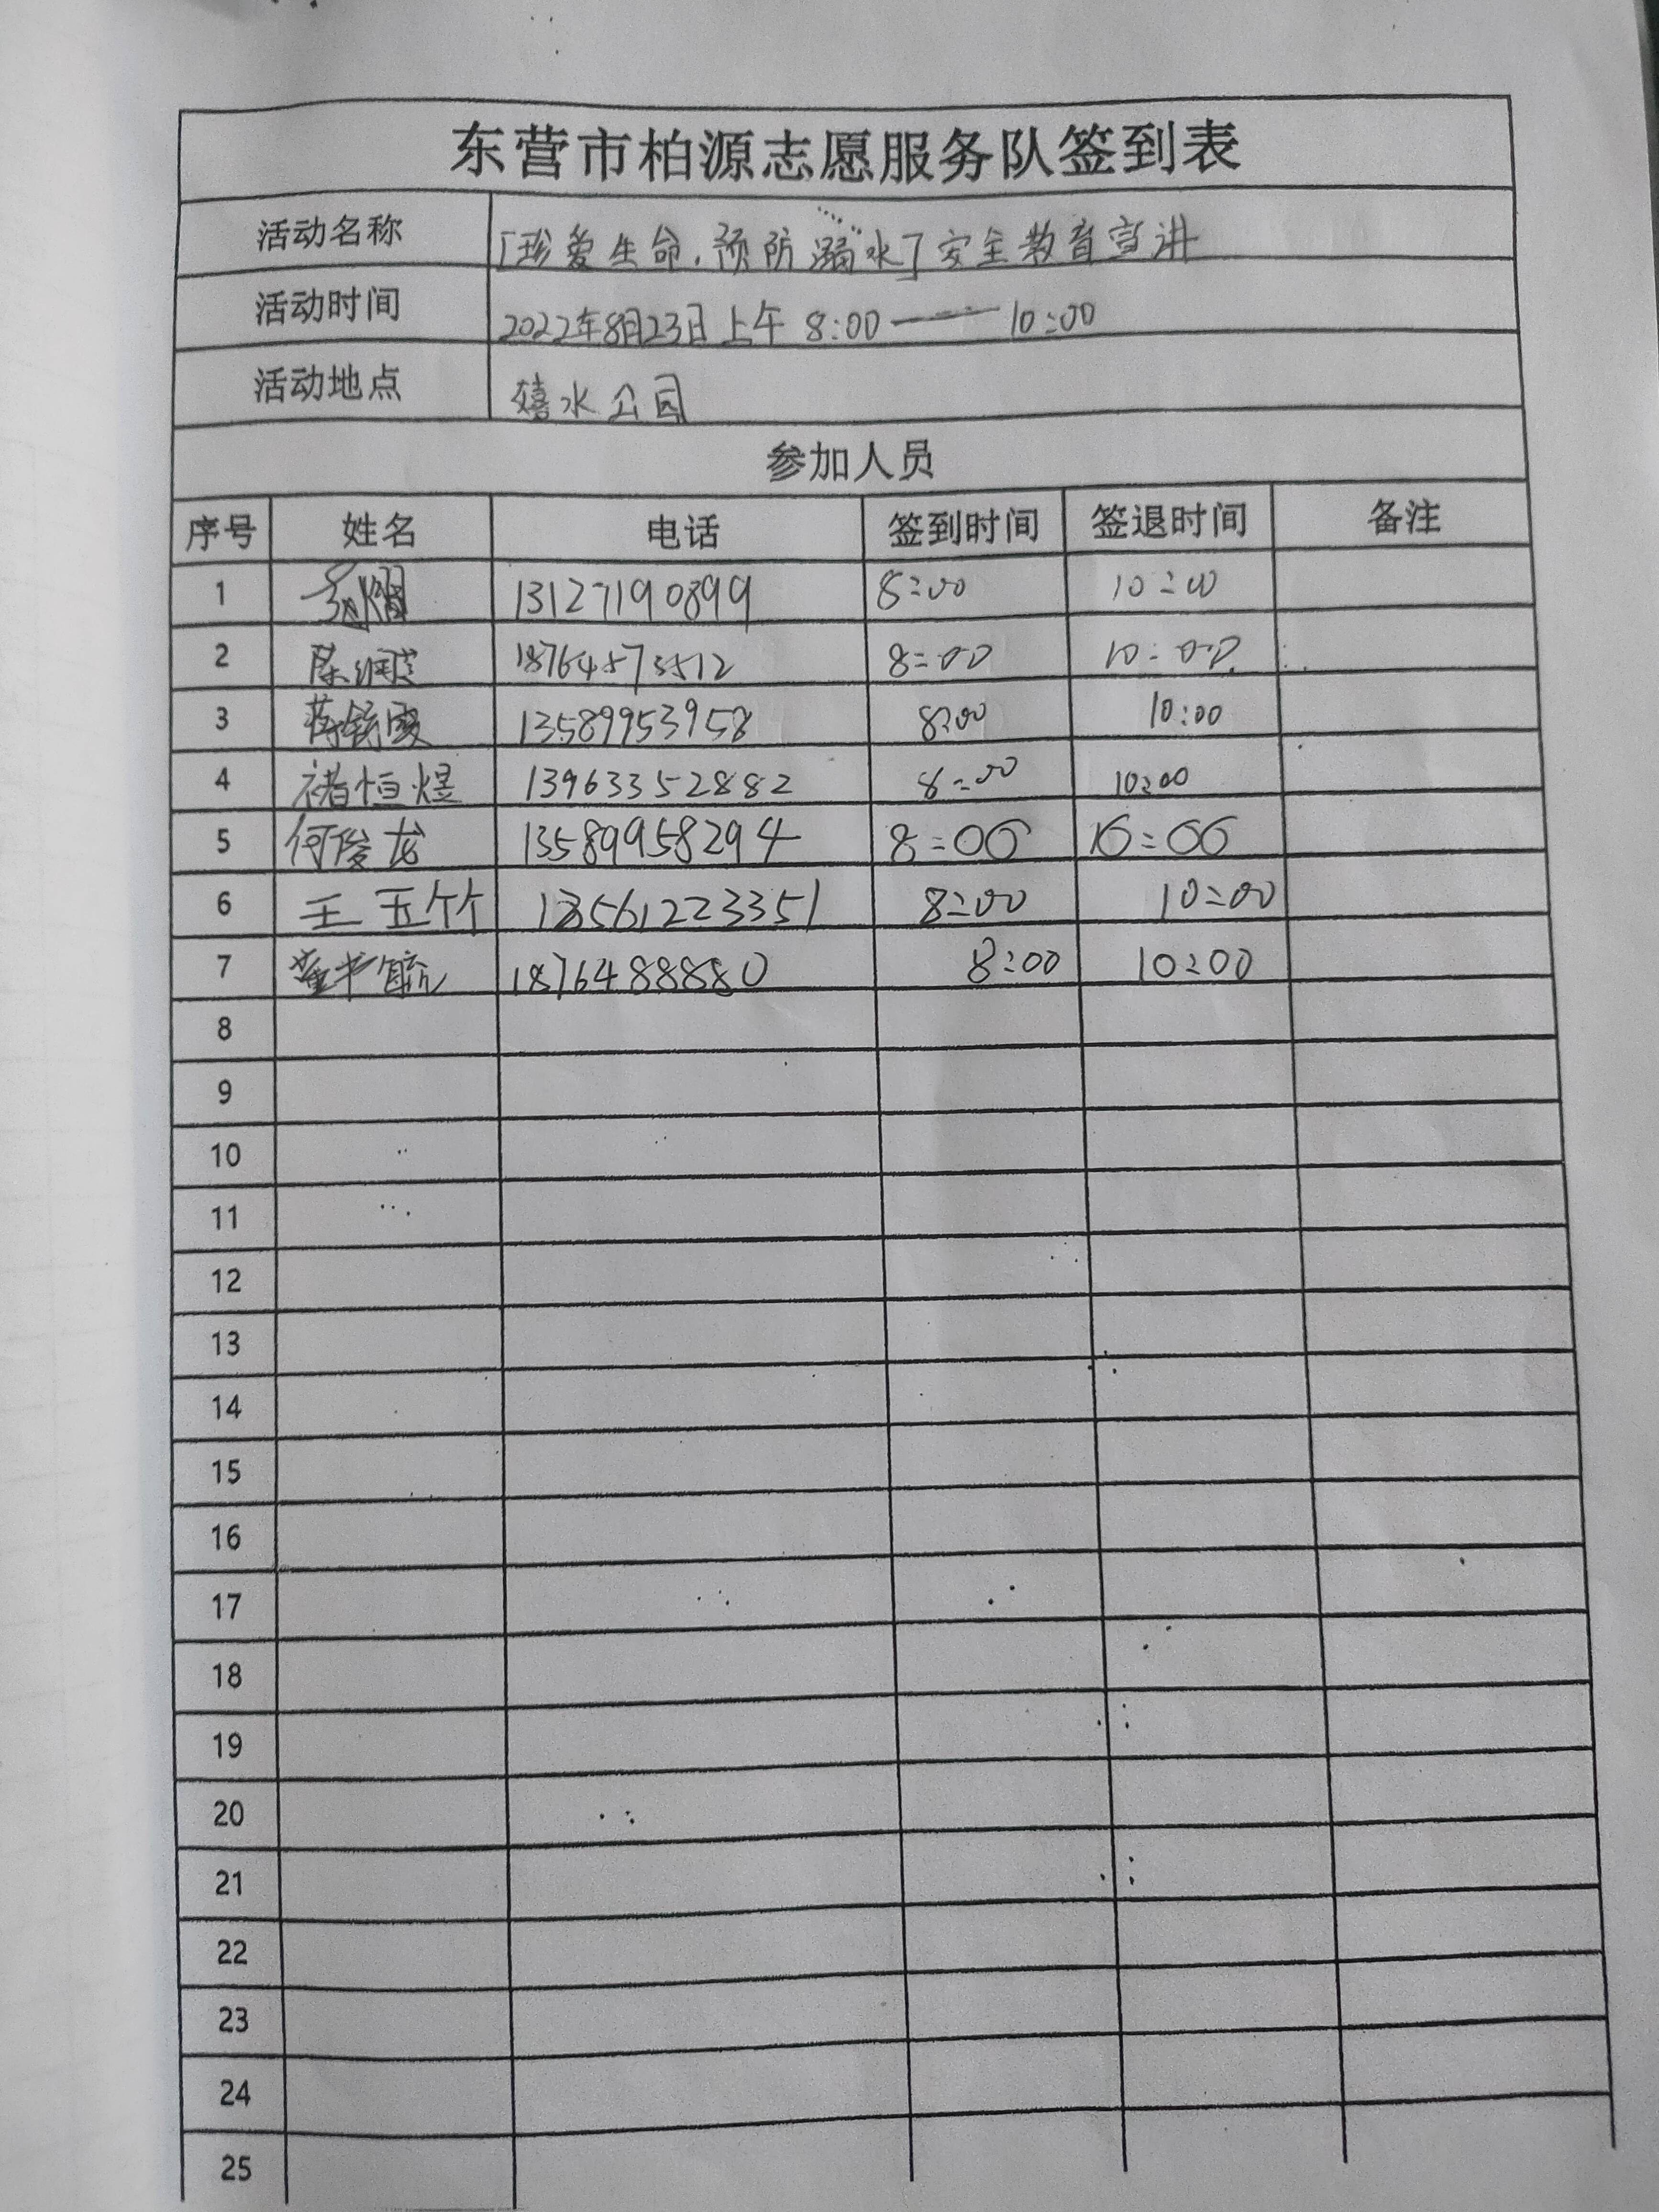 东营市柏源志愿服务队签到表
活动名称 「珍爱生命,预防溺水」安全教育宣讲
活动时间 2022年8月23日上午 8:00——10:00
活动地点 嬉水公园
参加人员
序号 姓名 电话 签到时间 签退时间 备注
1 13127190899 8:00 10:00
2 18764873512 8:00 10:00
3 13589953958 8:00 10:00
4 褚恒煜 13963352882 8:00 10:00
5 何俊龙 13589958294 8:00 10:00
6 王玉竹 13561223351 8:00 10:00
7 1876488880 8:00 10:00
8
9
10
11
12
13
14
15
16
17
18
19
20
21
22
23
24
25